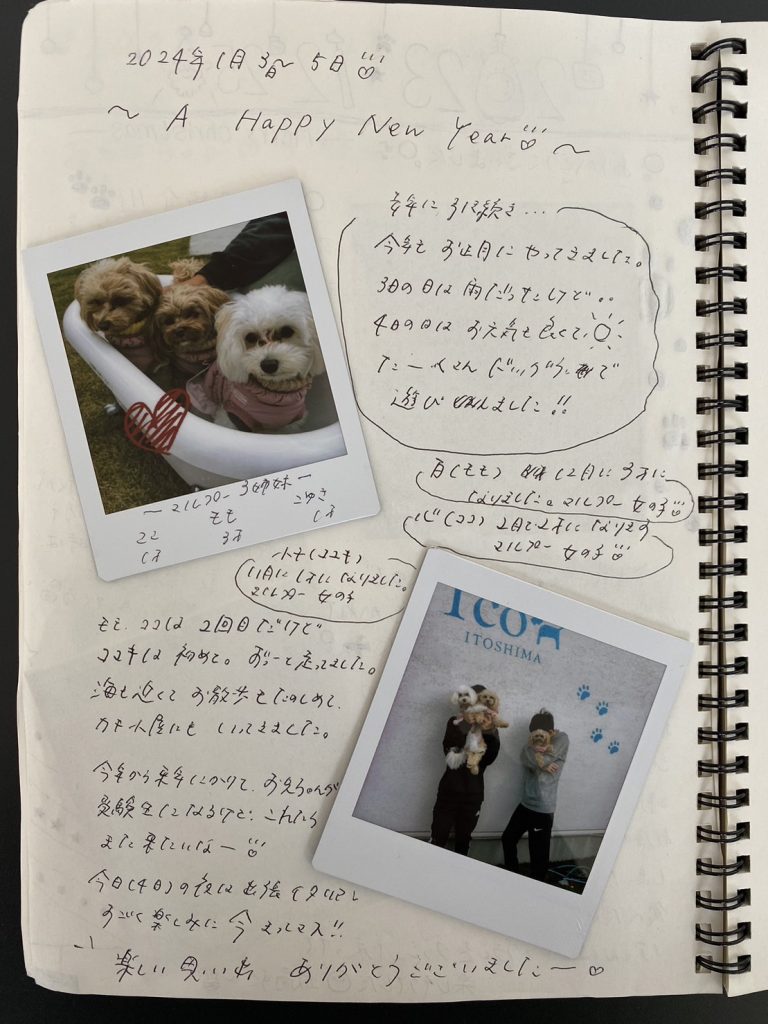 2024年1月3日〜5日
〜 A Happy New Year 〜
去年に引き続き…
今年もお正月にやってきました。
3日の日は雨だったけど..
4日の日はお天気も良くて
たーくさん ドッグランで
遊びました!!
〜マルプー3姉妹〜
ココ もも こゆき
1才 3才 1才
百(もも) 12月に3才に
なりました。マルプー 女の子
心(ココ) 2月で2才になります
マルプー 女の子
11月に1才になりました。
マルプー 女の子
もも、ココは 2回目だけど
は初めて。ずーっと走ってました。
海も近くて お散歩もたのしめて、
カキ小屋にも いってきました。
今年から来年にかけて、お兄ちゃんが
受験生になるけど、これたら
また来たいなー
今日(4日)の夜は出張
すごく楽しみに今 まってマス!!
楽しい思い出 ありがとうございましたー
ICO
ITOSHIMA